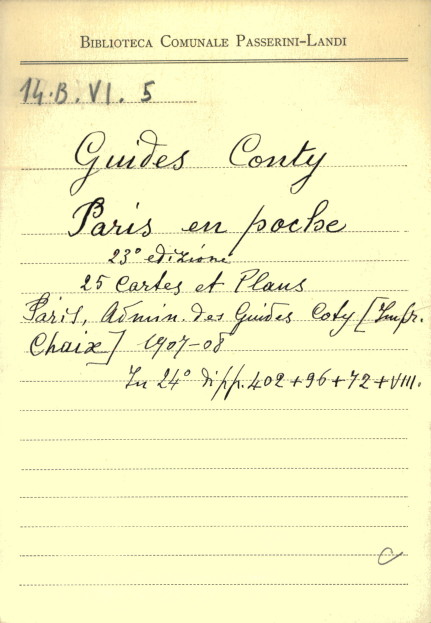 BIBLIOTECA COMUNALE PASSERINI-LANDI
14.B.VI. 5
Guides Conty
Paris en poche
23° edizione
25 Cartes et Plans
Paris, Admin. des Guides Coty [Impr.
Chaix] 1907-08
In 24° di pp. 402+96+72+VIII.
C